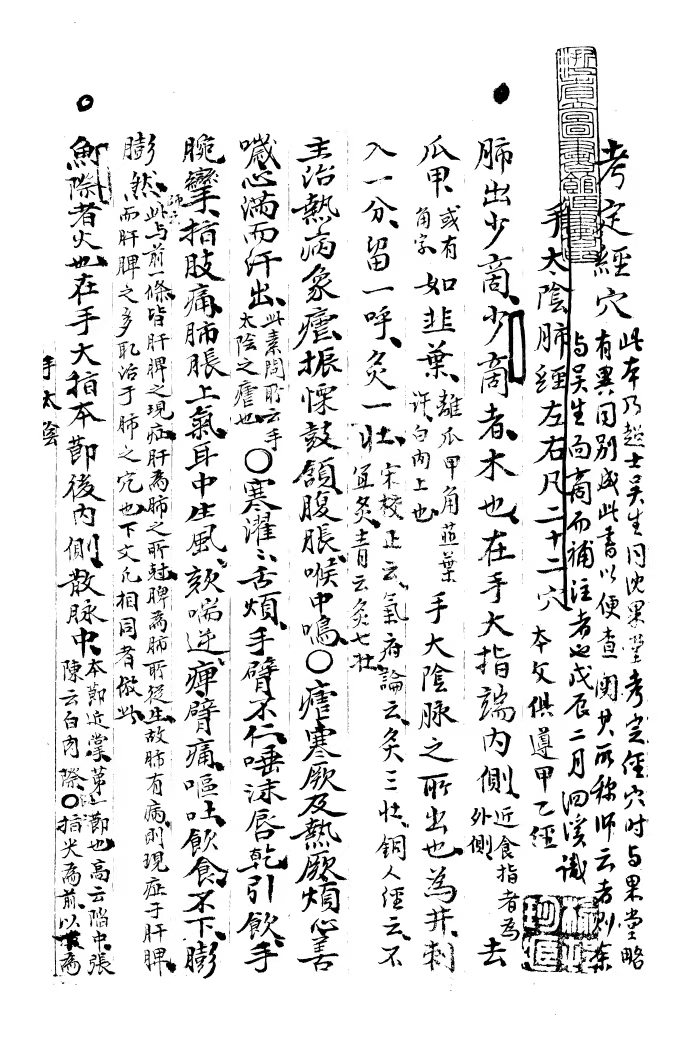 考定經穴
此本乃趙士吴生同沈果堂考定經穴时与果堂略
有異同别成此書以便查閱其所称师云者则余
与吴生面商而補注者也戊辰二月泗溪識
手太陰肺經左右凡二十二穴 本文俱遵甲乙經
肺出少商少商者木也在手大指端内側近食指者為外側去
爪甲或有角字如韭葉離爪甲角韮葉许白肉上也手太陰脉之所出也為井刺
入一分留一呼灸一壮宋校正云氣府論云灸三壮銅人經云不宜灸青云灸七壮
主治熱病象瘧振慄鼓頷腹脹喉中鳴〇瘧寒厥及熱厥煩心善
噦心满而汗出此素問所云手太陰之瘧也〇寒濯濯舌煩手臂不仁唾沫唇乾引飲手
腕攣指肢痛肺脹上氣耳中生風欬喘逆痺臂痛嘔吐飲食不下膨
膨然师云此与前一條皆肝脾之现症肝為肺之所尅脾為肺所從生故肺有病則现症于肝脾
而肝脾之多取治于肺之穴也下文凡相同者倣此
魚際者火也在手大指本節後内側散脉中本節近掌第一節也高云陷中張
陳云白肉際〇指尖為前以掌為
手太陰